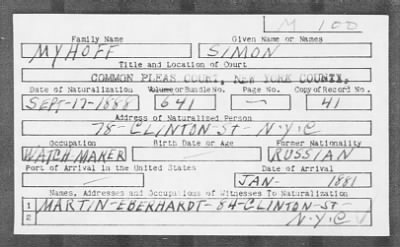 M 100
Family Name Given Name or Names
MYHOFF SIMON
Title and Location of Court
COMMON PLEAS COURT, NEW YORK COUNTY.
Date of Naturalization Volume or Bundle No. Page No. Copy of Record No.
SEPT-17-1888 641 — 41
Address of Naturalized Person
78-CLINTON-ST-N.Y.C
Occupation Birth Date or Age Former Nationality
WATCH MAKER — RUSSIAN
Port of Arrival in the United States Date of Arrival
— JAN- 1881
Names, Addresses and Occupations of Witnesses To Naturalization
1 MARTIN-EBERHARDT-84-CLINTON-ST-
2 N.Y.C